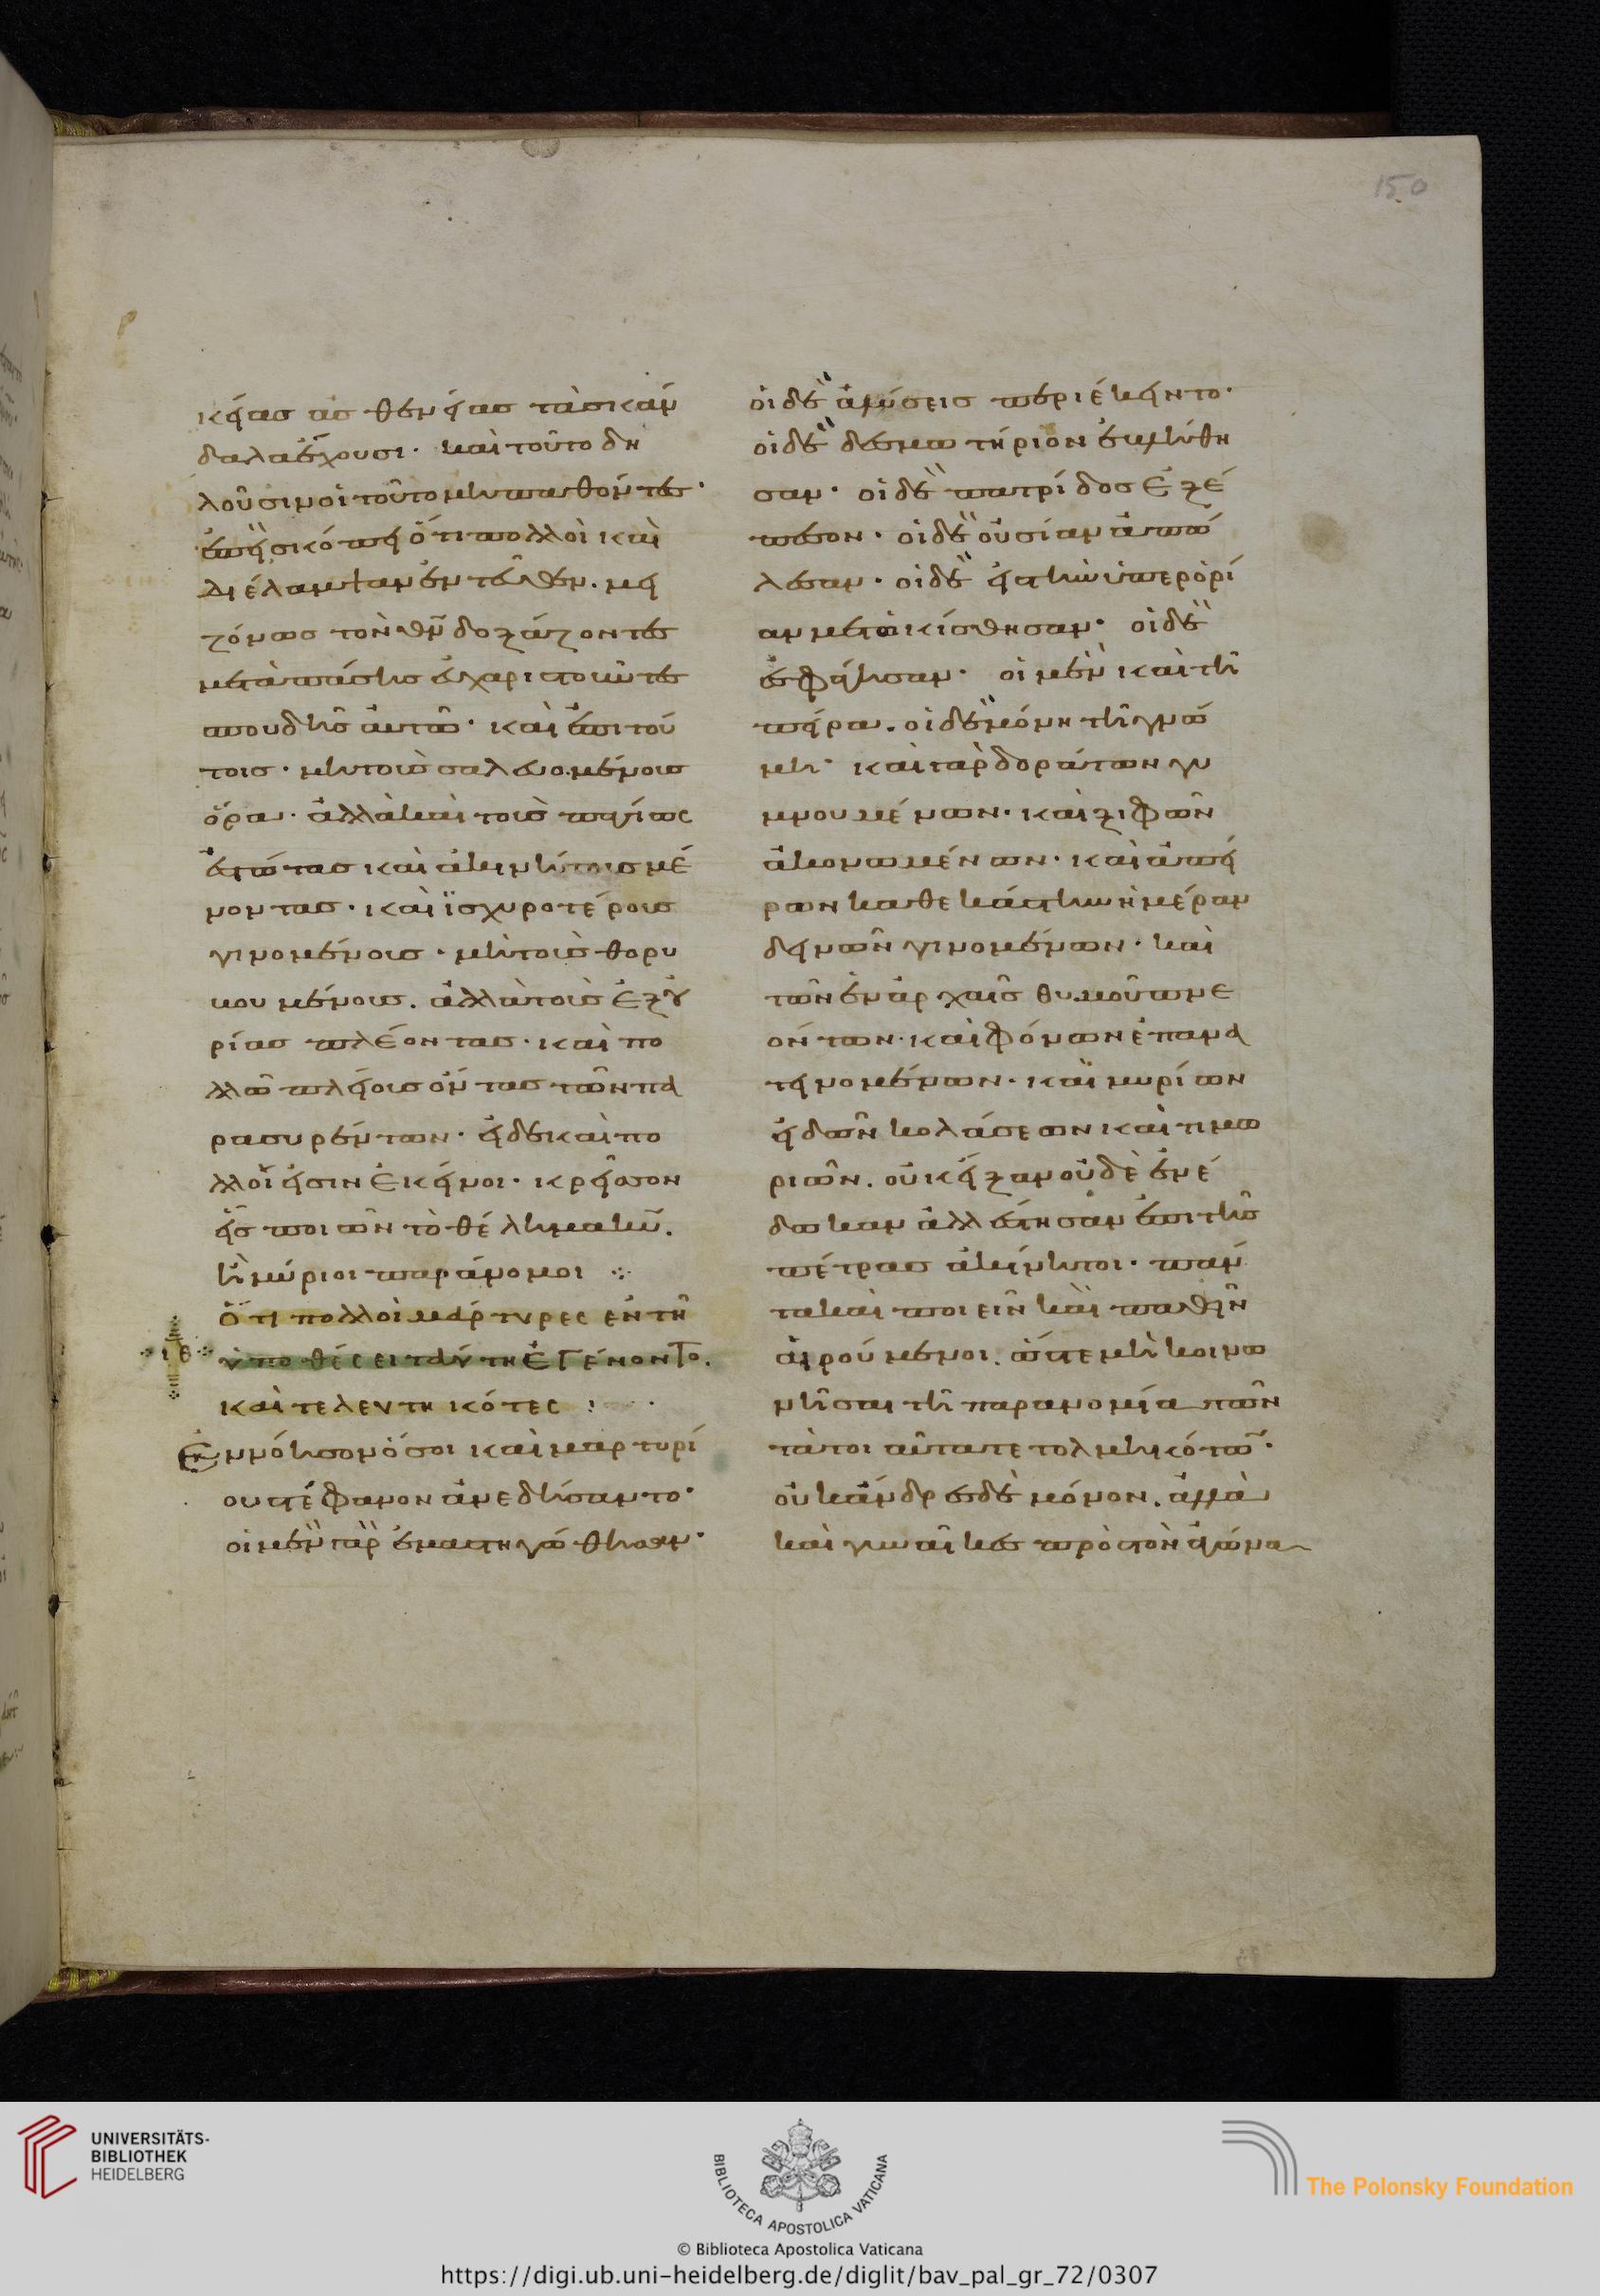 κείας ἀσθενείας τὰ σκάν
δαλα ἔχουσι· καὶ τοῦτο δη
λοῦσιν οἱ τοῦτο μὴ παθόντες·
ἐπεὶ σκόπει ὅτι πολλοὶ καὶ
διέλαμψαν ἐντεῦθεν. μει
ζόνως τὸν θν̅ δοξάζοντες
μετὰ πάσης εὐχαριστοῦντες
σπουδῆς αὐτῶ· καὶ ἐπι τού
τοις· μὴ τοὺς σαλευομένους
ὅρα· ἀλλὰ καὶ τοὺς παγίως
ἑστῶτας καὶ ἀκινήτους μέ
νοντας· καὶ ἰσχυροτέρους
γινομένους· μὴ τοὺς θορυ
βουμένους. ἀλλὰ τοὺς ἐξ οὐ
ρίας πλέοντας· καὶ πο
λλῶ πλείους ὄντας τῶν πα
ρασυρέντων· εἰ δὲ καὶ πο
λλοὶ εἰσιν ἐκεῖνοι· κρεῖσσον
εἷς ποιῶν τὸ θέλημα κυ̅.
ἢ μύριοι παράνομοι ⁘
Ὅτι πολλοὶ μάρτυρες ἐν τῆ
ιθ ὑποθέσει ταύτη ἐγένοντο.
καὶ τελευτηκότες :
Ἐννόησον ὅσοι καὶ μαρτυρί
ου στέφανον ἀνεδήσαντο·
οἱ μὲν γὰρ ἐμαστιγώθησαν·
οἱ δὲ ἁλύσεις περιέκειντο·
οἱ δὲ δεσμωτήριον ἐβλήθη
σαν· οἱ δὲ πατρίδος ἐξέ
πεσον· οἱ δὲ οὐσίαν ἀπώ
λεσαν· οἱ δὲ εἰς τὴν ὑπερορί
αν μετωκίσθησαν· οἱ δὲ
ἐσφάγησαν· οἱ μὲν καὶ τῆ
πείρα. οἱ δὲ μόνη τῆ γνώ
μη· καὶ γὰρ δοράτων γυ
μνουμένων· καὶ ξιφῶν
ἀκονωμένων· καὶ ἀπει
ρῶν καθεκάστην ἡμέραν
δεινῶν γινομένων· καὶ
τῶν ἐν ἀρχαῖς θυμοῦ πνε
όντων· καὶ φόνων ἐπανα
τεινομένων· καὶ μυρίων
εἰδῶν κολάσεων καὶ τιμω
ριῶν. οὐκ εἶξαν οὐδὲ ἐνέ
δωκαν ἀλλ ἔστησαν ἐπι τῆς
πέτρας ἀκίνητοι· πάν
τα καὶ ποιεῖν καὶ παθεῖν
αἱρούμενοι. ὥστε μὴ κοινω
νῆσαι τῆ παρανομία τῶν
τὰ τοιαῦτα τετολμηκότων·
οὐκ ἄνδρες δὲ μόνον. ἀλλὰ
καὶ γυναῖκες πρὸς τὸν ἀγῶνα
150
UNIVERSITÄTS-
BIBLIOTHEK
HEIDELBERG
BIBLIOTECA APOSTOLICA VATICANA
The Polonsky Foundation
© Biblioteca Apostolica Vaticana
https://digi.ub.uni-heidelberg.de/diglit/bav_pal_gr_72/0307